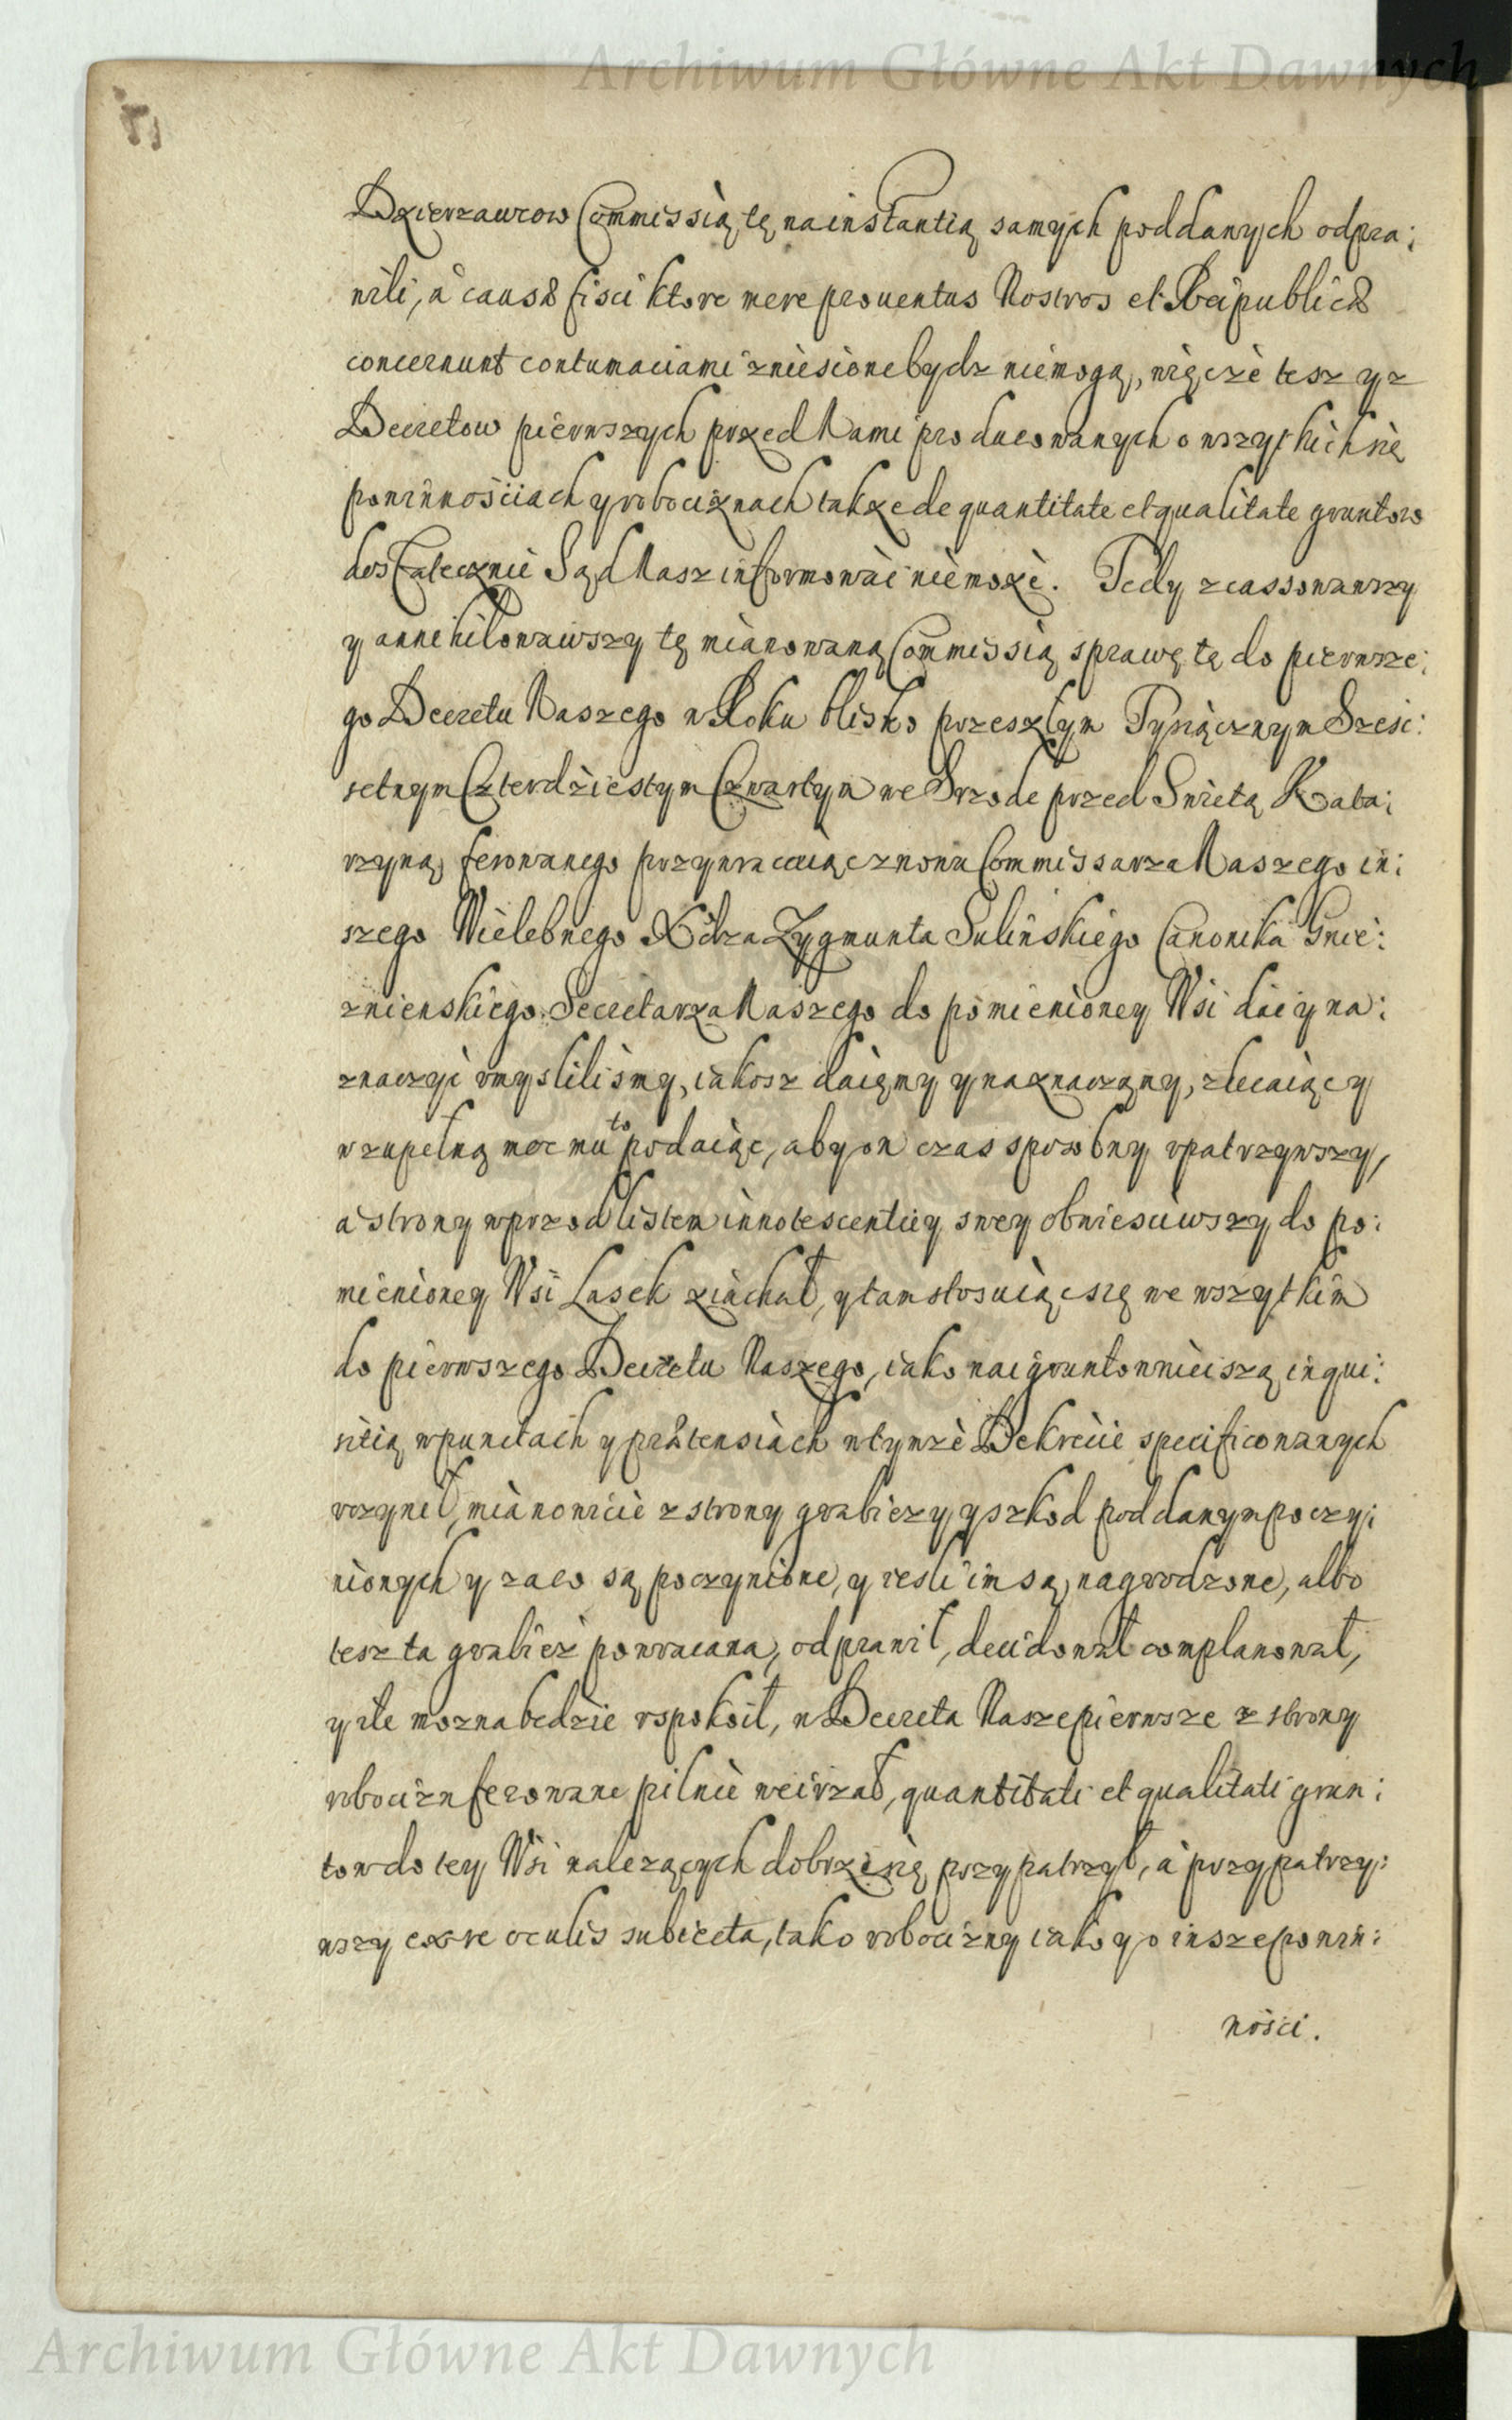 Archiwum Główne Akt Dawnych
Dzierzawcow Commissią tę na instantią samych poddanych odpra:
wili, a causæ fisci ktore mere prouentus Nostros et Reipublicæ
concernunt contumaciami zniesione bydz niemogą, więc że tesz y z
Decretow pierwszych przed Nami producowanych o wszytkich się
powinnościach y robociznach także de quantitate et qualitate gruntow
dostatecznie Sąd Nasz informować niemoże. Tedy zcassowawszy
y annihilowawszy tę mianowaną Commissią sprawę tę do pierwsze:
go Decretu Naszego w Roku blisko przeszłym Tysiącznym Szesc:
setnym Czterdziestym Czwartym we Srzode przed Swietą Kata:
rzyną, ferowanego przywracaiąc znowu Commissarza Naszego in:
szego Wielebnego Xdza Zygmunta Sulinskiego Canonika Gnie:
znienskiego Secretarza Naszego do pomienioney Wsi dać y na:
znaczyć vmyslilismy, iakosz daięmy y naznaczamy, zlecaiąc y
w zupełną moc mu to podaiąc, aby on czas sposobny vpatrzywszy,
a strony wprzod listem innotescentiey swey obwiesciwszy do po:
mienioney Wsi Lasek ziachał, y tam stosuiąc się we wszytkim
do pierwszego Decretu Naszego, iako naigruntownieiszą inqui:
sitią w punctach y prætensiach w tymże Dekrecie specificowanych
vczynił, mianowicie z strony grabiezy y szkod poddanym poczy:
nionych y zaco są poczynione, y iesli im są nagrodzone, albo
tesz ta grabież powracana, odprawił, decidował complanował,
y ile mozna bedzie vspokoił, w Decreta Nasze pierwsze z strony
robocizn ferowane pilnie weirzał, quantitati et qualitati grun:
tow do tey Wsi nalezących dobrze się przypatrzył, a przypatrzy:
wszy ex re oculis subiecta, tako robocizny iako y o insze powin:
ności.
Archiwum Główne Akt Dawnych